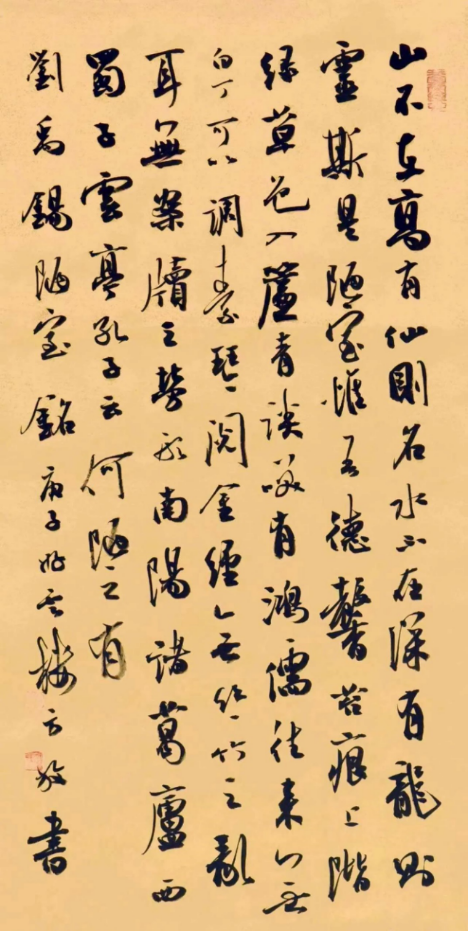 山不在高有仙則名水不在深有龍則
靈斯是陋室惟吾德馨苔痕上階
綠草色入簾青談笑有鴻儒往來無
白丁可以調素琴閱金經無絲竹之亂
耳無案牘之勞形南陽諸葛廬西
蜀子雲亭孔子云何陋之有
劉禹錫陋室銘庚子樓方書